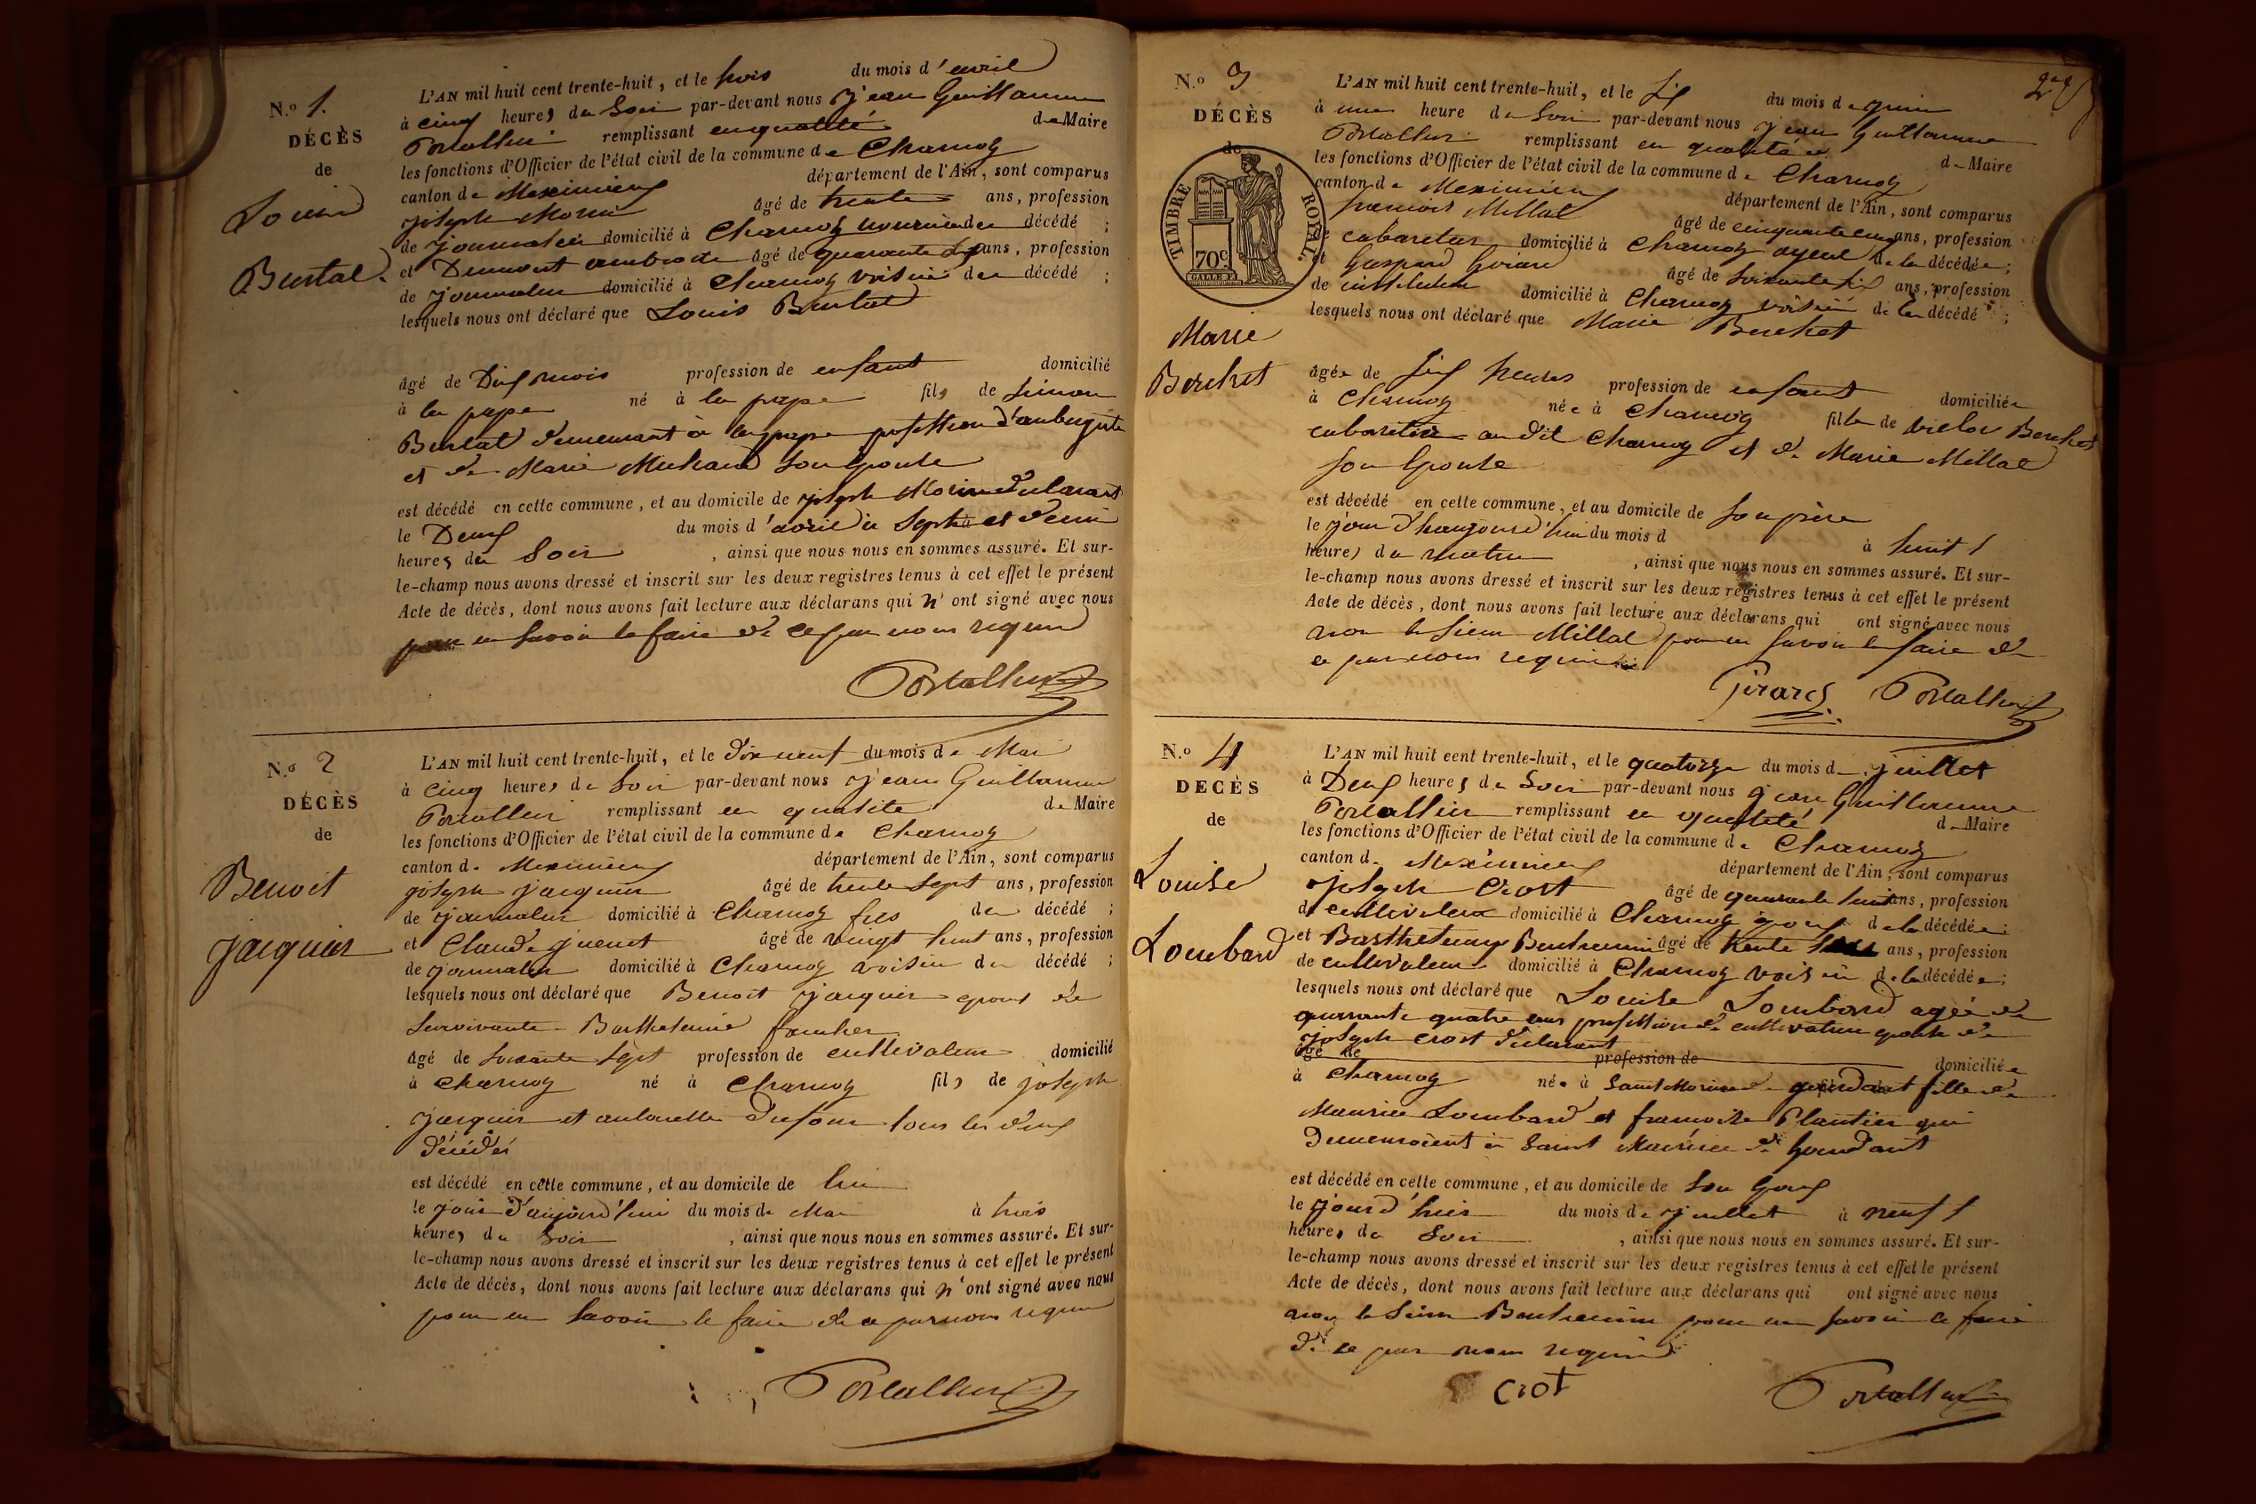 N.º 1.
DÉCÈS
de
Louis
Burtal
L'AN mil huit cent trente-huit, et le trois du mois d'avril
à cinq heures du Soir par-devant nous jean Guillaume
Portallier remplissant en qualité de Maire
les fonctions d'Officier de l'état civil de la commune de Charnoz
canton de Meximieux département de l'Ain, sont comparus
joseph Morin âgé de trente ans, profession
de journalier domicilié à Charnoz nourricier du décédé ;
et Dumont ambroise âgé de quarante six ans, profession
de journalier domicilié à Charnoz voisin du décédé ;
lesquels nous ont déclaré que Louis Burtal
âgé de Dix mois profession de enfant domicilié
à la pape né à la pape fils de Simon
Burtal demeurant à la pape profession d'aubergiste
et de Marie Michaud son épouse
est décédé en cette commune, et au domicile de joseph Morin déclarant
le Deux du mois d'avril à Sept et demi
heures du Soir , ainsi que nous nous en sommes assuré. Et sur-
le-champ nous avons dressé et inscrit sur les deux registres tenus à cet effet le présent
Acte de décès, dont nous avons fait lecture aux déclarans qui n'ont signé avec nous
pour ne savoir le faire de ce par nous requis
Portallier
N.º 2
DÉCÈS
de
Benoit
jacquier
L'AN mil huit cent trente-huit, et le dix neuf du mois de Mai
à cinq heures du Soir par-devant nous jean Guillaume
Portallier remplissant en qualité de Maire
les fonctions d'Officier de l'état civil de la commune de Charnoz
canton de Meximieux département de l'Ain, sont comparus
joseph jacquier âgé de trente Sept ans, profession
de journalier domicilié à Charnoz fils du décédé ;
et Claude juenet âgé de vingt huit ans, profession
de journalier domicilié à Charnoz voisin du décédé ;
lesquels nous ont déclaré que Benoit jacquier epoux de
Survivante Barthelemie
âgé de soixante Sept profession de cultivateur domicilié
à Charnoz né à Charnoz fils de joseph
jacquier et antoinette Dufour tous les deux
décédés
est décédé en cette commune, et au domicile de lui
le jour d'aujourd'hui du mois de Mai à trois
heures du Soir , ainsi que nous nous en sommes assuré. Et sur-
le-champ nous avons dressé et inscrit sur les deux registres tenus à cet effet le présent
Acte de décès, dont nous avons fait lecture aux déclarans qui n'ont signé avec nous
pour ne savoir le faire de ce par nous requis
Portallier
N.º 3
DÉCÈS
de
TIMBRE ROYAL.
70c
Marie
Berchet
L'AN mil huit cent trente-huit, et le Six du mois de juin
à une heure du Soir par-devant nous jean Guillaume
Portallier remplissant en qualité de Maire
les fonctions d'Officier de l'état civil de la commune de Charnoz
canton de Meximieux département de l'Ain, sont comparus
francois Millat âgé de cinquante cinq ans, profession
cabaretier domicilié à Charnoz ayeul de la décédée ;
et Gaspard Girard âgé de Soixante six ans, profession
de instituteur domicilié à Charnoz voisin de la décédé ;
lesquels nous ont déclaré que Marie Berchet
âgée de Six heures profession de enfant domiciliée
à Charnoz née à Charnoz fille de victor Berchet
cabaretier au dit Charnoz et de Marie Millat
son Epouse
est décédé en cette commune, et au domicile de son père
le jour d'haujourd'hui du mois d à huit
heures du matin , ainsi que nous nous en sommes assuré. Et sur-
le-champ nous avons dressé et inscrit sur les deux registres tenus à cet effet le présent
Acte de décès, dont nous avons fait lecture aux déclarans qui ont signé avec nous
non le Sieur Millat pour ne savoir le faire de
ce par nous requis
Girard Portallier
N.º 4
DECÈS
de
Louise
Lombard
L'AN mil huit cent trente-huit, et le quatorze du mois de juillet
à Deux heures du Soir par-devant nous jean Guillaume
Portallier remplissant en qualité de Maire
les fonctions d'Officier de l'état civil de la commune de Charnoz
canton de Meximieux département de l'Ain, sont comparus
joseph Crost âgé de quarante huit ans, profession
de cultivateur domicilié à Charnoz époux de la décédée ;
et Barthelemy Benhennin âgé de trente ans, profession
de cultivateur domicilié à Charnoz voisin de la décédée ;
lesquels nous ont déclaré que Louise Lombard agée de
quarante quatre ans profession de cultivatrice epouse de
joseph crost déclarant
âgé de profession de domiciliée
à Charnoz née à Saint Maurice de gourdant fille de
Maurice Lombard et francoise Plantier qui
demeuroient à Saint Maurice de Gourdant
est décédé en cette commune, et au domicile de Son Epoux
le jour d'hier du mois de juillet à neuf
heures du Soir , ainsi que nous nous en sommes assuré. Et sur-
le-champ nous avons dressé et inscrit sur les deux registres tenus à cet effet le présent
Acte de décès, dont nous avons fait lecture aux déclarans qui ont signé avec nous
non le Sieur Benhennin pour ne savoir le faire
de ce par nous requis
Crot Portallier